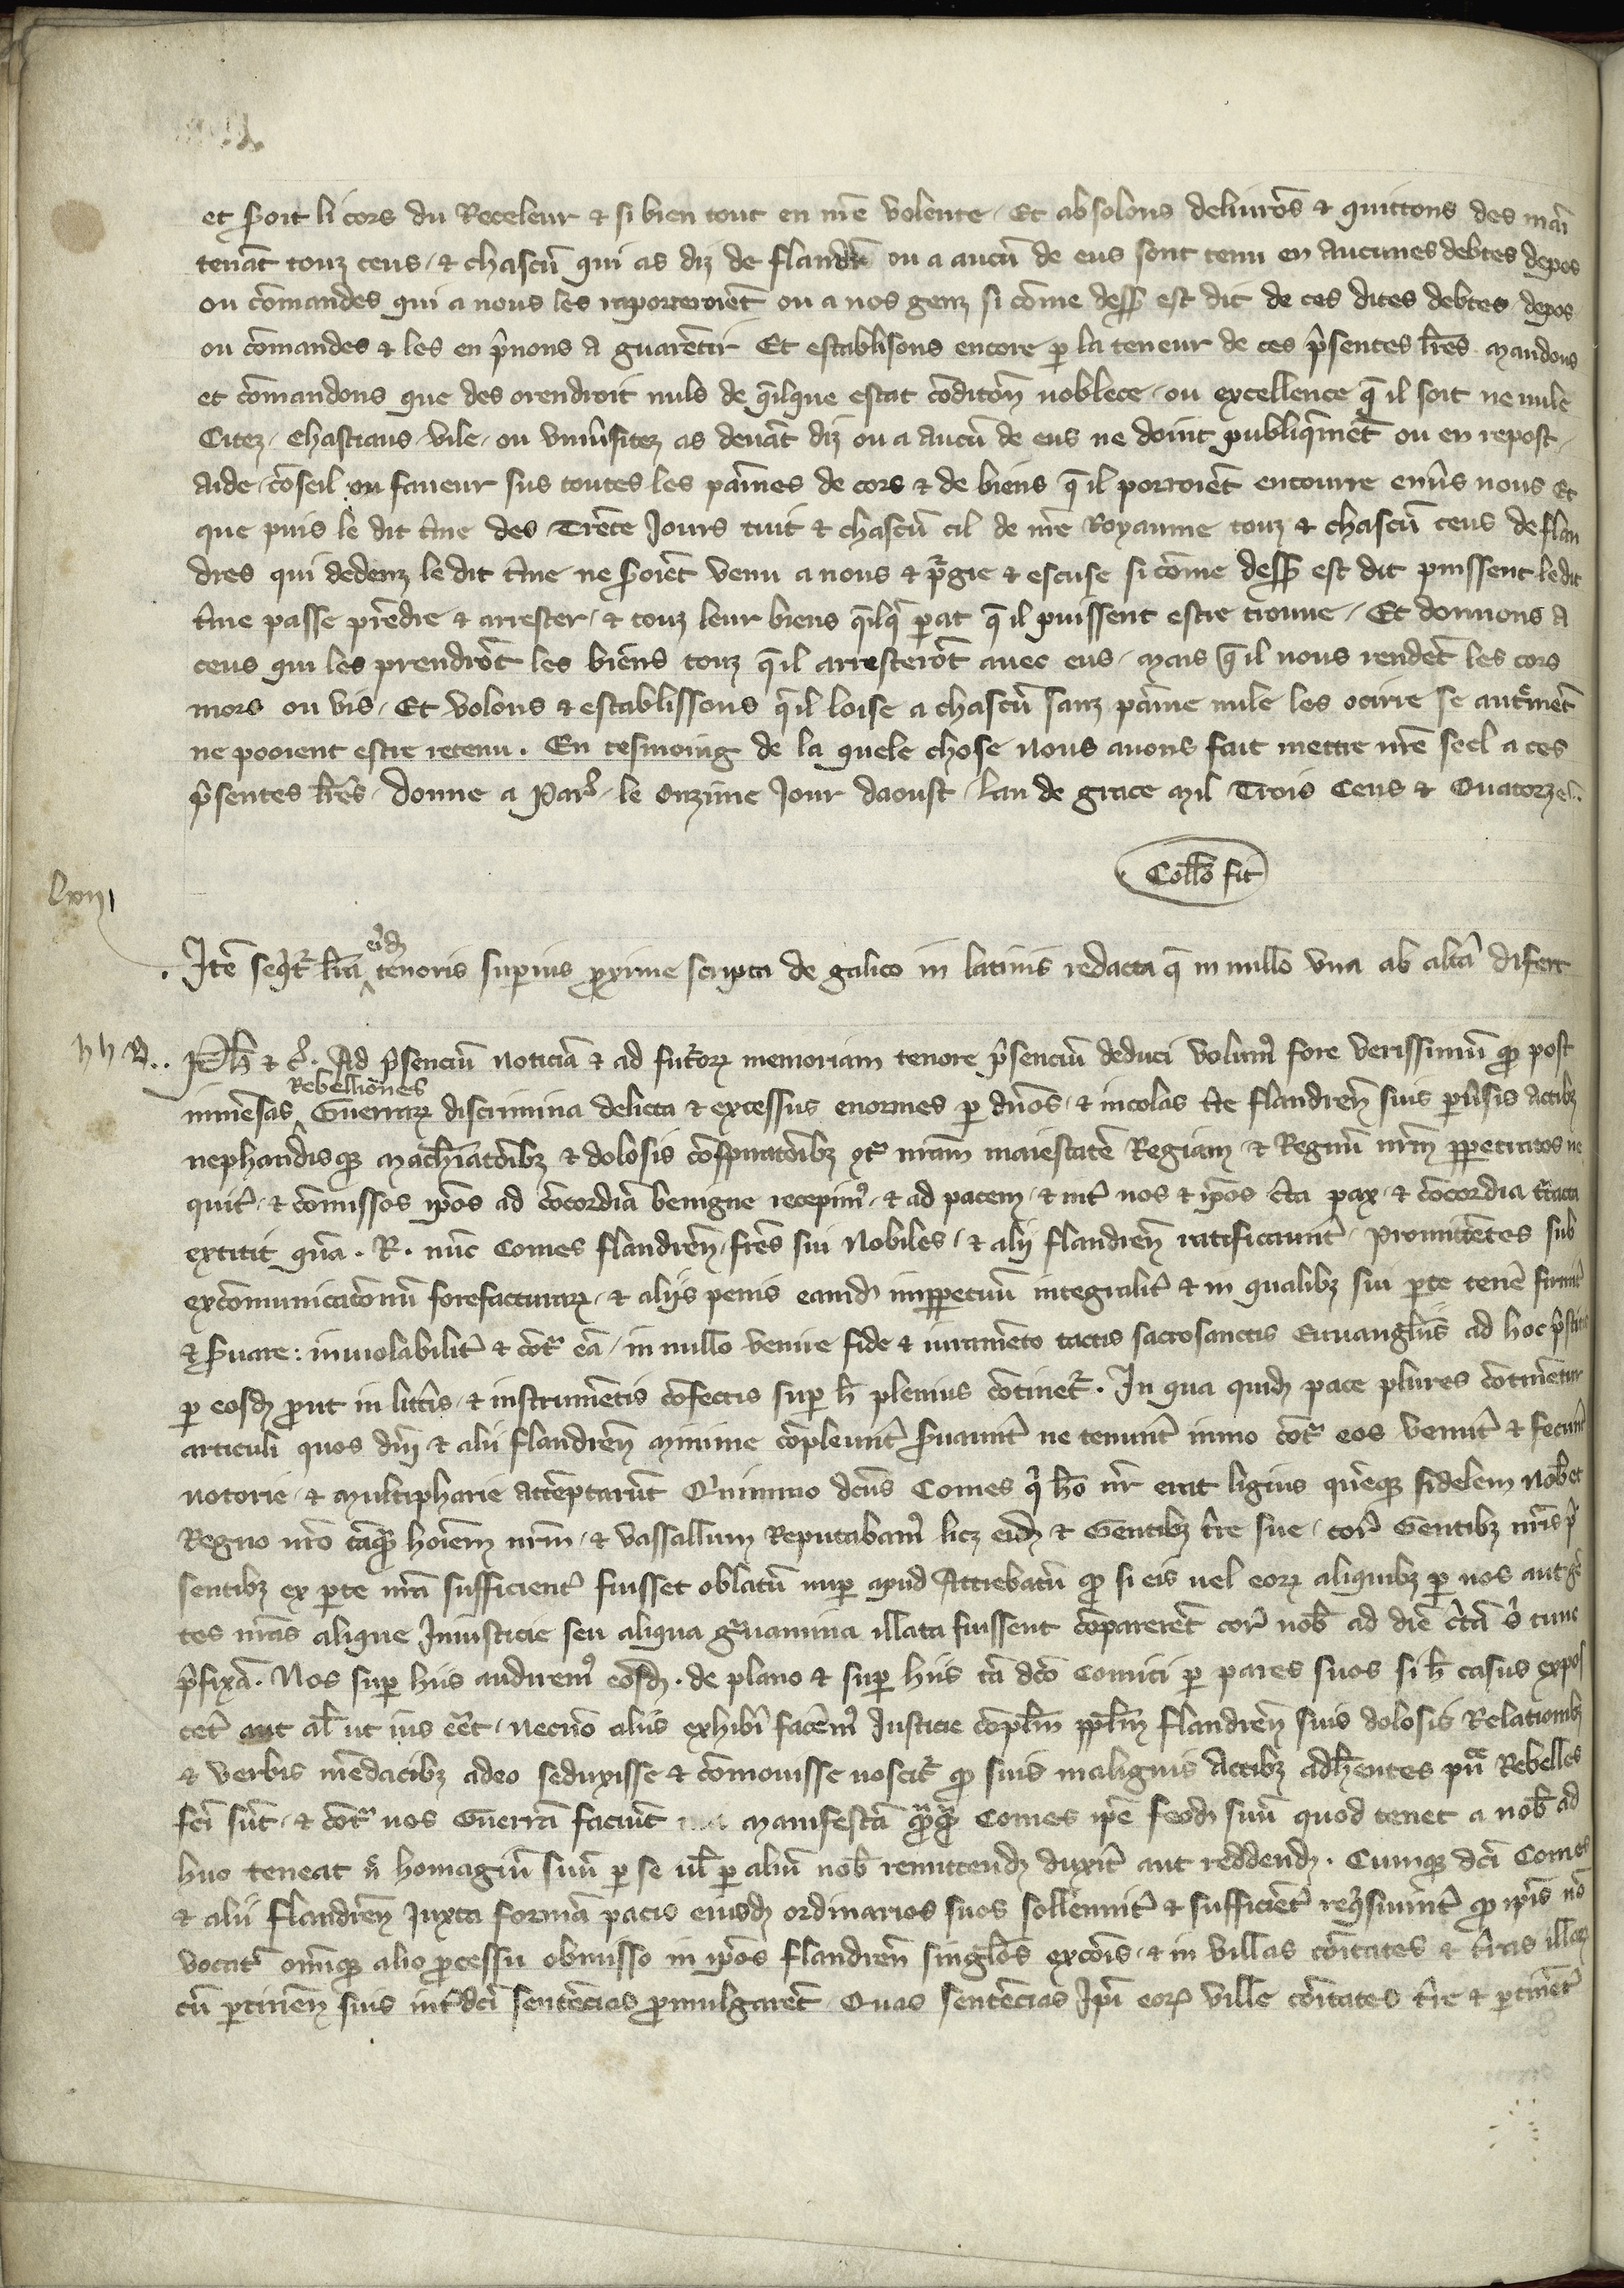 et seroit li cors du Receleur & si bien tout en nr̄e volente. Et absolons deliurōs & quittons des mai
tenāt touz ceus & chascū qui as diz de flandr̄ ou a aucū de eus sont tenu en aucunes debtes depos
ou cōmandes qui a nous les raporteroiēt ou a nos genz si cōme dess̄ est dit de ces dites debtes depos
ou cōmandes & les en p̄nons a guarētir Et establisons encore p la teneur de ces p̄sentes lr̄es mandons
et cōmandons que des orendroit nuls de q̄lque estat cōditōn noblece ou excellence q̄ il soit ne nule
Citez chastiaus vile ou vniūsitez as deuāt diz ou a aucū de eus ne doint publiq̄mēt ou en repost
aide cōseil ou faueur sus toutes les paīnes de cors & de biens q̄ il porroiēt encourre enūs nous Et
que puis le dit t̄me des Trēte Jours tuit & chascū cil de nr̄e Royaume touz & chascū ceus de flan
dres qui dedenz le dit t̄me ne s̄oiēt venu a nous & p̄gie & escuse si cōme dess̄ est dit puissent le dit
t̄me passe prēdre & arrester & touz leur biens q̄lq̄ part q̄ il puissent estre trouue Et donnons a
ceus qui les prendrōt les biens touz q̄ il arresterōt auec eus mais q̄ il nous rendēt les cors
mors ou vis Et volons & establissons q̄ il loise a chascū sanz paīne nule les ocirre se autr̄mēt
ne pooient estre retenu. En tesmoing de la quele chose nous auons fait mettre nr̄e seel a ces
p̄sentes lr̄es donne a Par̄ le Onzime Jour daoust lan de grace mil Trois Cens & Quatorze
Coll̄o fit
lxiii
Itē seqt̄r lr̄a eid̄ tenoris superius proxime scripta de galico in latinis redacta q̄ in nullo vna ab alt̄a difert
Ph̄ & c̄. Ad p̄senciū noticiā & ad futuror̄ memoriam tenore p̄senciū deduci volum9 fore verissimū q̄ post
inmēsas Rebelliones Guerrar̄ discrimina delicta & excessus enormes p dn̄os & incolas t̄re flandreñ suis puīsis actibz
nephandisq̄ machīatōibz & dolosis cōspiratōibz ꝯt̄ nr̄am maiestatē Regiam & Regnū nr̄m ppetratos ne
quit̄ & cōmissos ip̄os ad cōcordiā benigne recepim9 & ad pacem & int̄ nos & ip̄os c̄ta pax & cōcordia t̄ctata
extitit qūa R. nūc Comes flandreñ fr̄es sui Nobiles & alij flandreñ ratificauūt promittētes sub
excōmunicacōnū forefacturar̄ & aliis penis eamd̄ inppetuū integralit̄ & in qualibz sui pte tenē firmit̄
& s̄uare: inuiolabilit̄ & cōt̄ eā in nullo venire fide & iuramēto tactis sacrosanctis Euuangl̄iis ad hoc p̄stitis
p eosd̄ prout in litt̄is & instrumētis cōfectis sup h̄ plenius cōtinet̄. In qua quid̄ pace plures cōtinētur
articuli quos dn̄i & alii flandreñ minime cōpleuūt s̄uauūt ne tenuūt inmo cōt̄ eos venūt & fecūt
notorie & multipharie attēptarūt Quinimo dc̄us Comes q̄ hō nr̄ erat ligius quēq̄ fidelem nob̄ et
Regno nr̄o tāq̄ hoīem nr̄m & vassallum Reputabam9 licz eid̄ & Gentibz t̄re sue cor̄ Gentibz nr̄is p̄
sentibz ex pte nr̄a sufficient̄ fuisset oblatū nup apud Attrebatū q̄ si eis uel eor̄ aliquibz p nos aut gē
tes nr̄as alique Iniusticie seu aliqua gr̄uamina illata fuissent cōparerēt cor̄ nob̄ ad diē c̄tā tunc
p̄fixā. Nos sup hiis audirem9 eosd̄. de plano & sup hiis tā dc̄o Comiti p pares suos si h̄ casus expos
cet̄ aut al̄ ut ius ēēt necnō aliis exhibī facēm9 Iusticie cōpl̄m ppl̄m flandreñ suis dolosis Relationibz
& verbis mēdacibz adeo seduxisse & cōmouisse noscit̄ q̄ suis malignis Actibz adh̄entes publice Rebelles
fc̄i sūt & cōt̄ nos Guerrā faciūt manifestā q̄q̄ Comes ip̄e feod̄ suū quod tenet a nob̄ ad
huc teneat n̄ homagiū suū p se ul̄ p aliū nob̄ remittend̄ duxit̄ aut reddend̄. Cumq̄ dc̄i Comes
& alii flandreñ Juxta formā pacis eiusd̄ ordinarios suos sollennit̄ & sufficiēt̄ req̄siuint̄ q̄ ip̄is nō
vocat̄ omīq̄ alio processu obmisso in ip̄os flandreñ singl̄os excōis & in villas cōitates & t̄ras illas
cū ptineñ suis int̄dc̄i sentēcias promulgarēt Quas sentēcias Ip̄i eor̄ ville cōitates t̄re & ptinēt̄